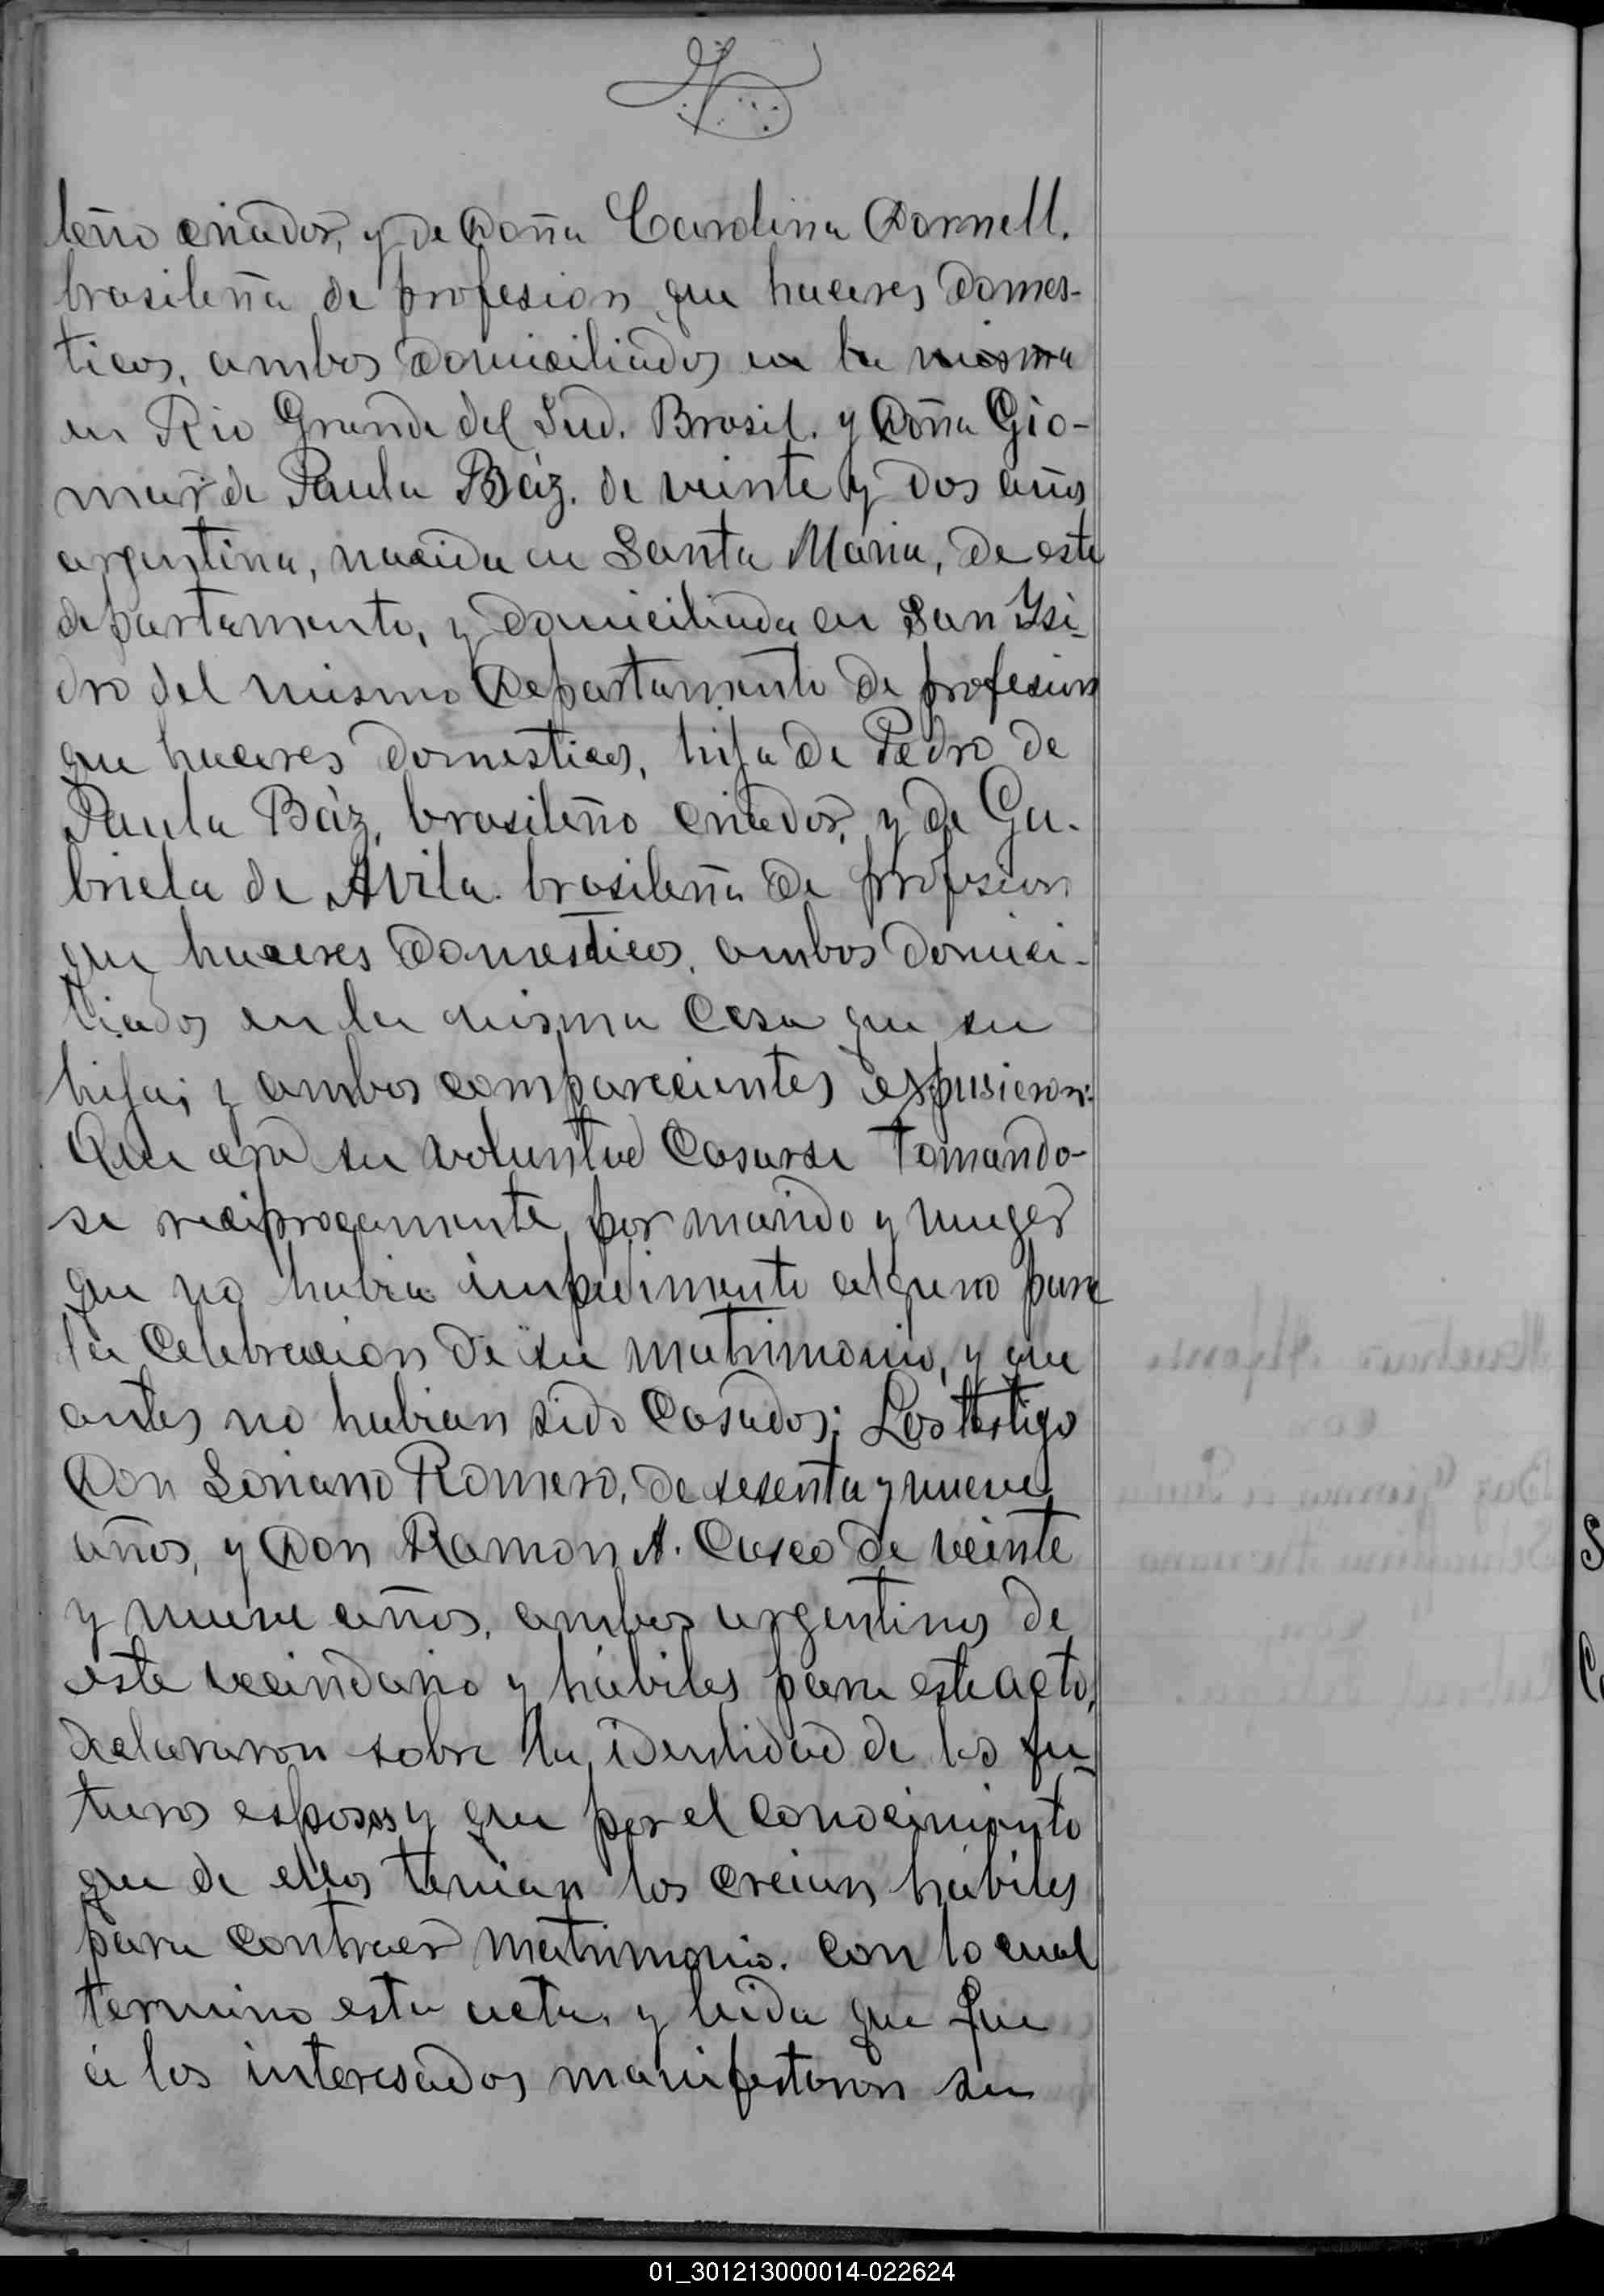 leño criador, y de Doña Carolina Dornell.
brasileña de profesion que haceres domes-
ticos, ambos domiciliados en la misma
en Rio Grande del Sud. Brasil. y Doña Gio-
mar de Paula Báz. de veinte y dos años
argentina, nacida en Santa Maria, de este
departamento, y domiciliada en San Ysi-
dro del mismo Departamento de profesion
que haceres domesticos, hija de Pedro de
Paula Báz, brasileño criador, y de Ga-
briela de Avila. brasileña de profesion
que haceres domesticos. ambos domici-
liados en la misma Casa que su
hija; y ambos comparecientes espusieron:
Que era su voluntad Casarse tomando-
se reciprocamente por marido y muger
que no habia impedimento alguno para
la Celebracion de su matrimonio, y que
antes no habian sido Casados; Los testigo
Don Soriano Romero, de sesenta y nueve
años, y Don Ramon A. de veinte
y nueve años, ambos argentinos de
este vecindario y hábiles para este acto,
declararon sobre la identidad de los fu-
turos esposos y que por el conocimiento
que de ellos tenian los creian hábiles
para contraer matrimonio. con lo cual
termino esta acta, y leida que fue
á los interesados manifestaron su
01_301213000014-022624